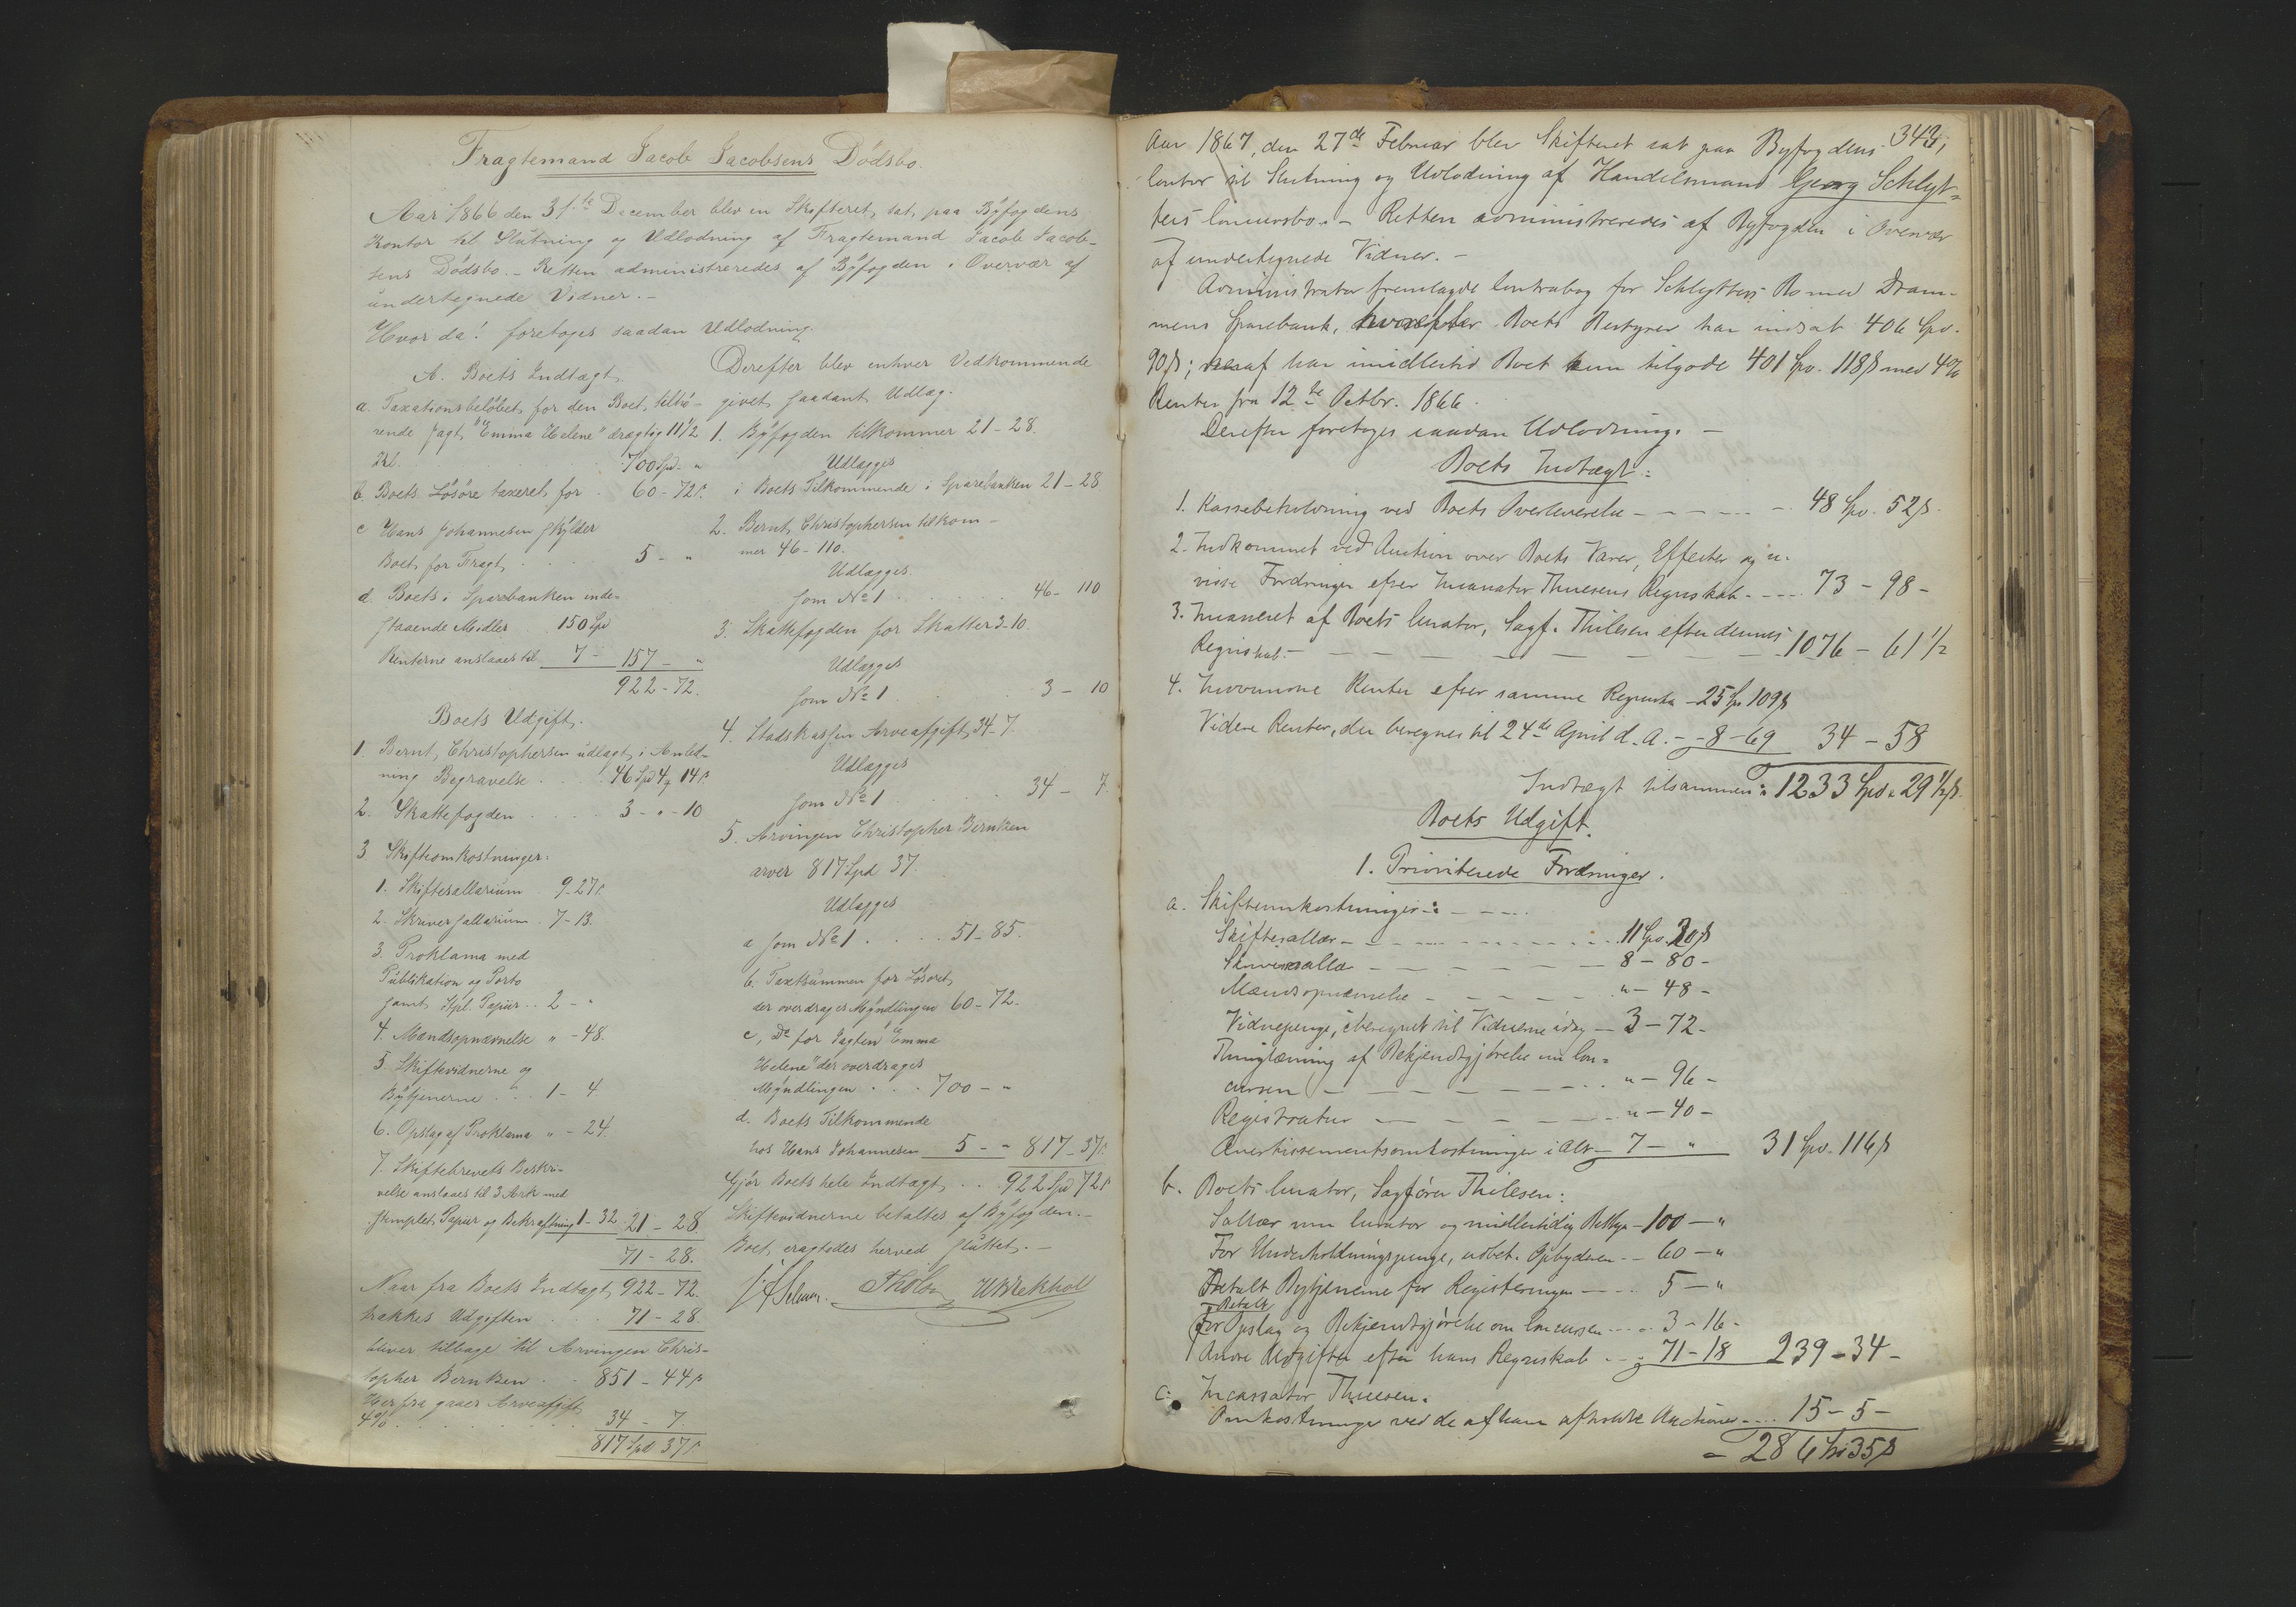 Fragtemand Jacob Jacobsens Dödsbo.
Aar 1866 den 31.te December blev en Skifteret sat paa Byfogdens
Kontor til Slutning og Udlodning af Fragtemand Jacob Jacob-
sens Dödsbo. – Retten administreredes af Byfogden i Overvær af
undertegnede Vidner. –
Hvor da! foretoges saadan Udlodning.
A. Boets Indtægt
a. Taxationsbelöbet for den Boet tilhö-
rende Jagt "Emma Helene" drægtig 11 1/2
Kl. 700 Spd. "
b. Boets Lösöre taxeret for . 60 - 72 s.
c Hans Johannesen skylder
Boet for Fragt . . . 5 - "
d. Boets i Sparebanken inde-
staaende Midler . . 150 Spd
Renterne anslaaes til 7 - 157 - "
922 - 72.
Boets Udgift.
1. Bernt Christophersen udlagt i Anled-
ning Begravelse . . . 46 Spd 4 14 s.
2. Skattefogden . . . . 3 - " - 10
3. Skifteomkostninger:
1. Skiftesallarium . 9 - 27 s.
2. Skriversallarium . 7 - 13.
3. Proklama med
Publikation og Porto
samt Stpl. Papiir . . 2 - "
4. Mandsopnævnelse " - 48.
5. Skiftevidnerne og
Bytjenerne . . . 1 - 4.
6. Opslag af Proklama " - 24.
7. Skiftebrevets Beskri-
velse anslaaes til 3 Ark med
stemplet Papiir og Bekræftning 1 - 32 21 - 28.
71 - 28.
Naar fra Boets Indtægt 922 - 72.
trækkes Udgiften . . . 71 - 28.
bliver tilbage til Arvingen Chris-
topher Berntzen . . 851 - 44 s
Herfra gaaer Arveafgift
4% . . . . . 34 - 7.
817 Spd 37 s.
Derefter blev enhver Vedkommende
givet saadant Udlæg.
1. Byfogden tilkommer 21 - 28.
Udlægges
i Boets Tilkommende i Sparebanken 21 - 28
2. Bernt Christophersen tilkom-
mer 46 - 110.
Udlægges
som No 1 . . . . . 46 - 110
3. Skattefogden for Skatter 3 - 10.
Udlægges
som No 1 . . . . 3 - 10
4. Stadskassen Arveafgift 34 - 7.
Udlægges
som No 1 . . . . 34 - 7.
5. Arvingen Christopher Berntzen
arver 817 Spd 37.
Udlægges
a som No 1 . . . . 51 - 85.
b. Taxtsummen for Lösöret,
der overdrages Myndlingen 60 - 72 -
c, Do for Jagten "Emma
Helene" der overdrages
Myndlingen . . . 700 - "
d. Boets Tilkommende
hos Hans Johannesen 5 - " 817 - 37 s.
Gjör Boets hele Indtægt . . 922 Spd 72 s
Skiftevidnerne betaltes af Byfogden. –
Boet eragtedes herved sluttet. –
343,
Aar 1867, den 27de Februar blev Skifteret sat paa Byfogdens
Contor til Slutning og Udlodning af Handelsmand Georg Schlyt=
ters Concursbo. – Retten administreredes af Byfogden i Overvær
af undertegnede Vidner. –
Administrator fremlagde Contrabog for Schlytters Bo med Dram-
mens Sparebank, hvorefter Boets Bestyrer har indsat 406 Spd.
90 s; heraf har imidlertid Boet kun tilgode 401 Spd. 118 s med 4%
Renter fra 12te Octbr. 1866.
Derefter foretoges saadan Udlodning. –
Boets Indtægt:
1. Kassebeholdning ved Boets Overleverelse – – – – – 48 Spd. 52 s.
2. Indkommet ved Auction over Boets Varer, Effecter og u-
visse Fordringer efter Incassator Thuesens Regnskab – – – 73 - 98 -
3. Incasseret af Boets Curator, Sagf. Thilesen efter dennes
Regnskab – – – – – – – 1076 - 61 1/2
4. Indvundne Renter efter samme Regnskab – 25 Sp 109 s
Videre Renter, der beregnes til 24de April d. A. – - 8 - 69 34 - 58
Indtægt tilsammen: 1233 Spd. 29 1/2 s.
Boets Udgift.
1. Prioriterede Fordringer.
a. Skifteomkostninger: – – –
Skiftesallær – – – – – 11 Spd. 20 s
Skriversallær – – – – – 8 - 80 -
Mændsopnævnelse – – – – " - 48 -
Vidnepenge, iberegnet til Vidnerne idag – 3 - 72 -
Thinglæsning af Bekjendtgjörelse om Con=
cursen – – – – – " - 96 -
Registratur – – – – " - 40 -
Avertissementsomkostninger i Alt – 7 - " 31 Spd. 116 s
b. Boets Curator, Sagförer Thilesen:
Sallær som Curator og midlertidig Bestyr – 100 - "
For Underholdningspenge, udbet. Opbyderen – - 60 - "
Betalt Bytjenerne for Registeringen – – 5 - "
Betalt
For Opslag og Bekjendtgjörelse om Concursen – – 3 - 16 -
Andre Udgifter efter hans Regnskab – - 71 - 18 239 - 34 -
c: Incassator Thuesen.
Omkostninger ved de af ham afholdte Auctioner – – 15 - 5 -
– 286 Sp 35 s